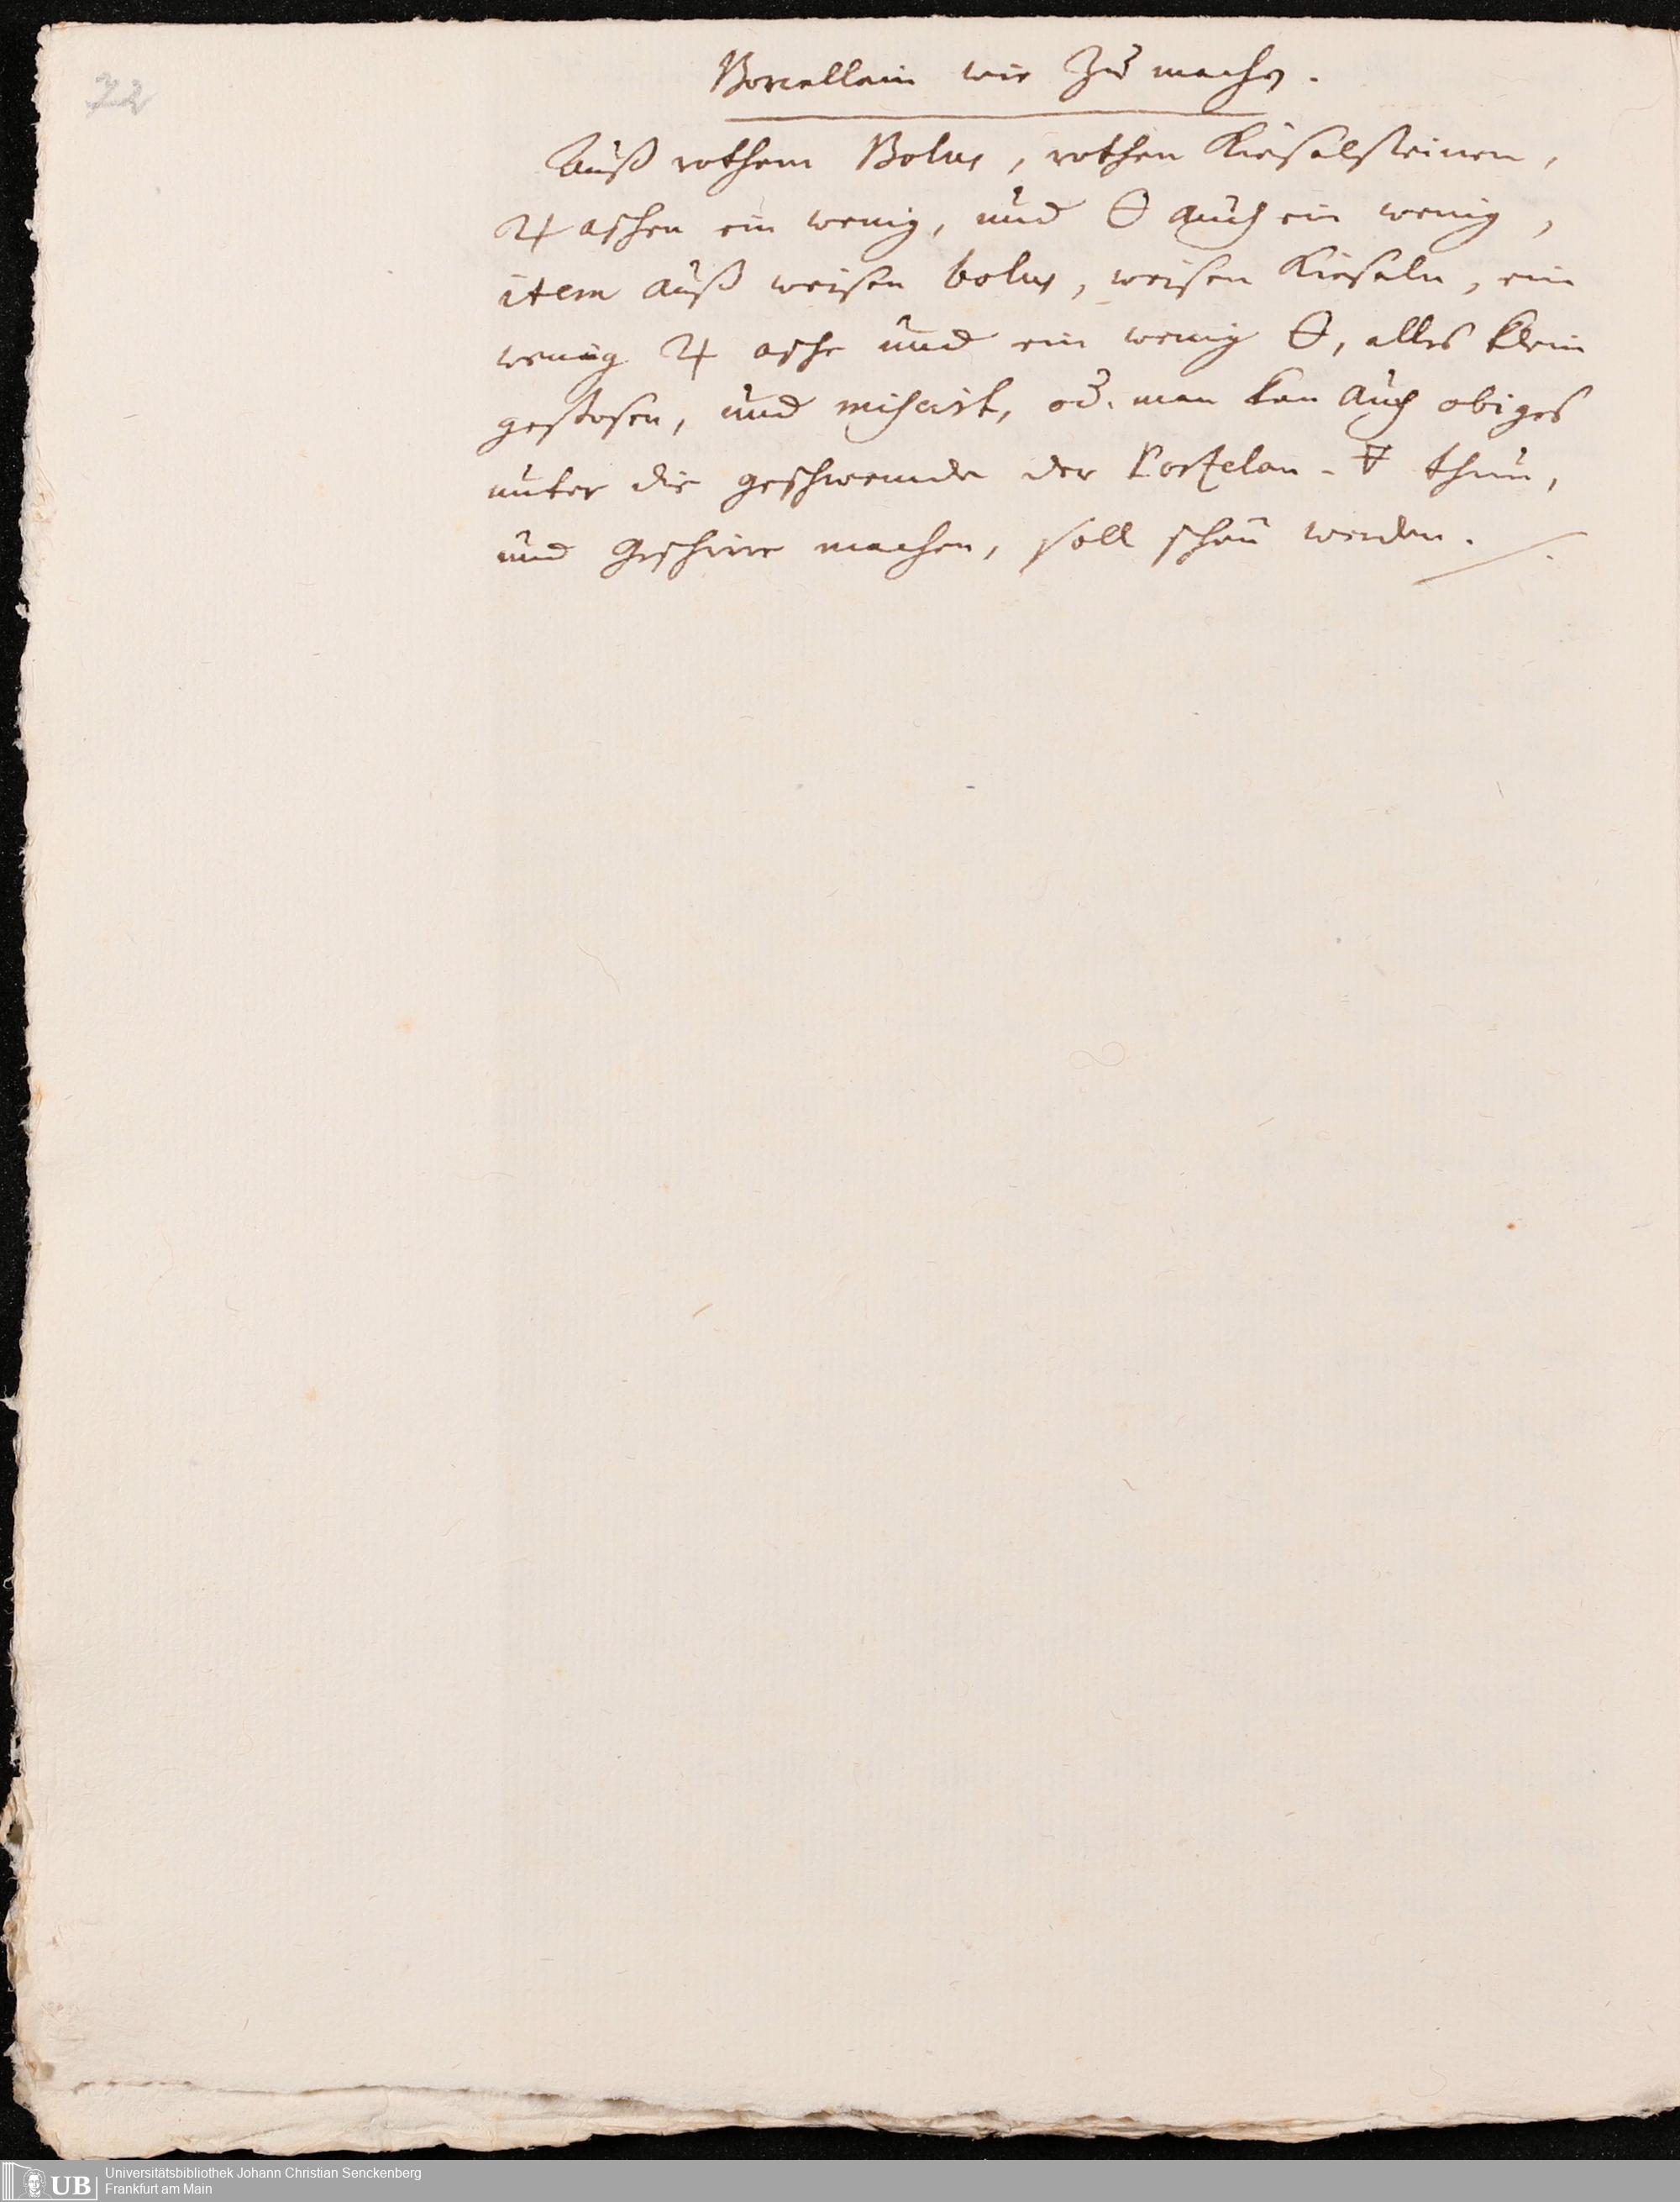 72
Borcellain wie Zu machen.
Auß rothem Bolus, rothen Kieselsteinen,
♃ aschen ein wenig, und 🜔 auch ein wenig,
item auß weisen bolus, weisen Kieseln, ein
wenig ♃ asche und ein wenig 🜔, alles klein
gestosen, und miscirt, od. man kan auch obiges
unter die geschwemde der Portzelan - 🜃 thun,
und geschirr machen, soll schön werden. ./.
UB
Universitätsbibliothek Johann Christian Senckenberg
Frankfurt am Main